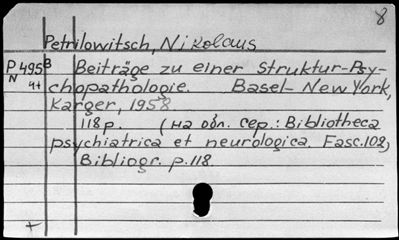 8
Petrilowitsch, Nikolaus
P 495 B Beiträge zu einer Struktur-Psy-
N 4+ chopathologie. Basel-New York,
Karger, 1958
118 p. (на обл. сер.: Bibliotheca
psychiatrica et neurologica. Fasc. 102)
Bibliogr. p. 118
+